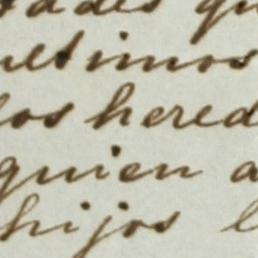 tades qu
ultimos
los hered
quien a
hijos l